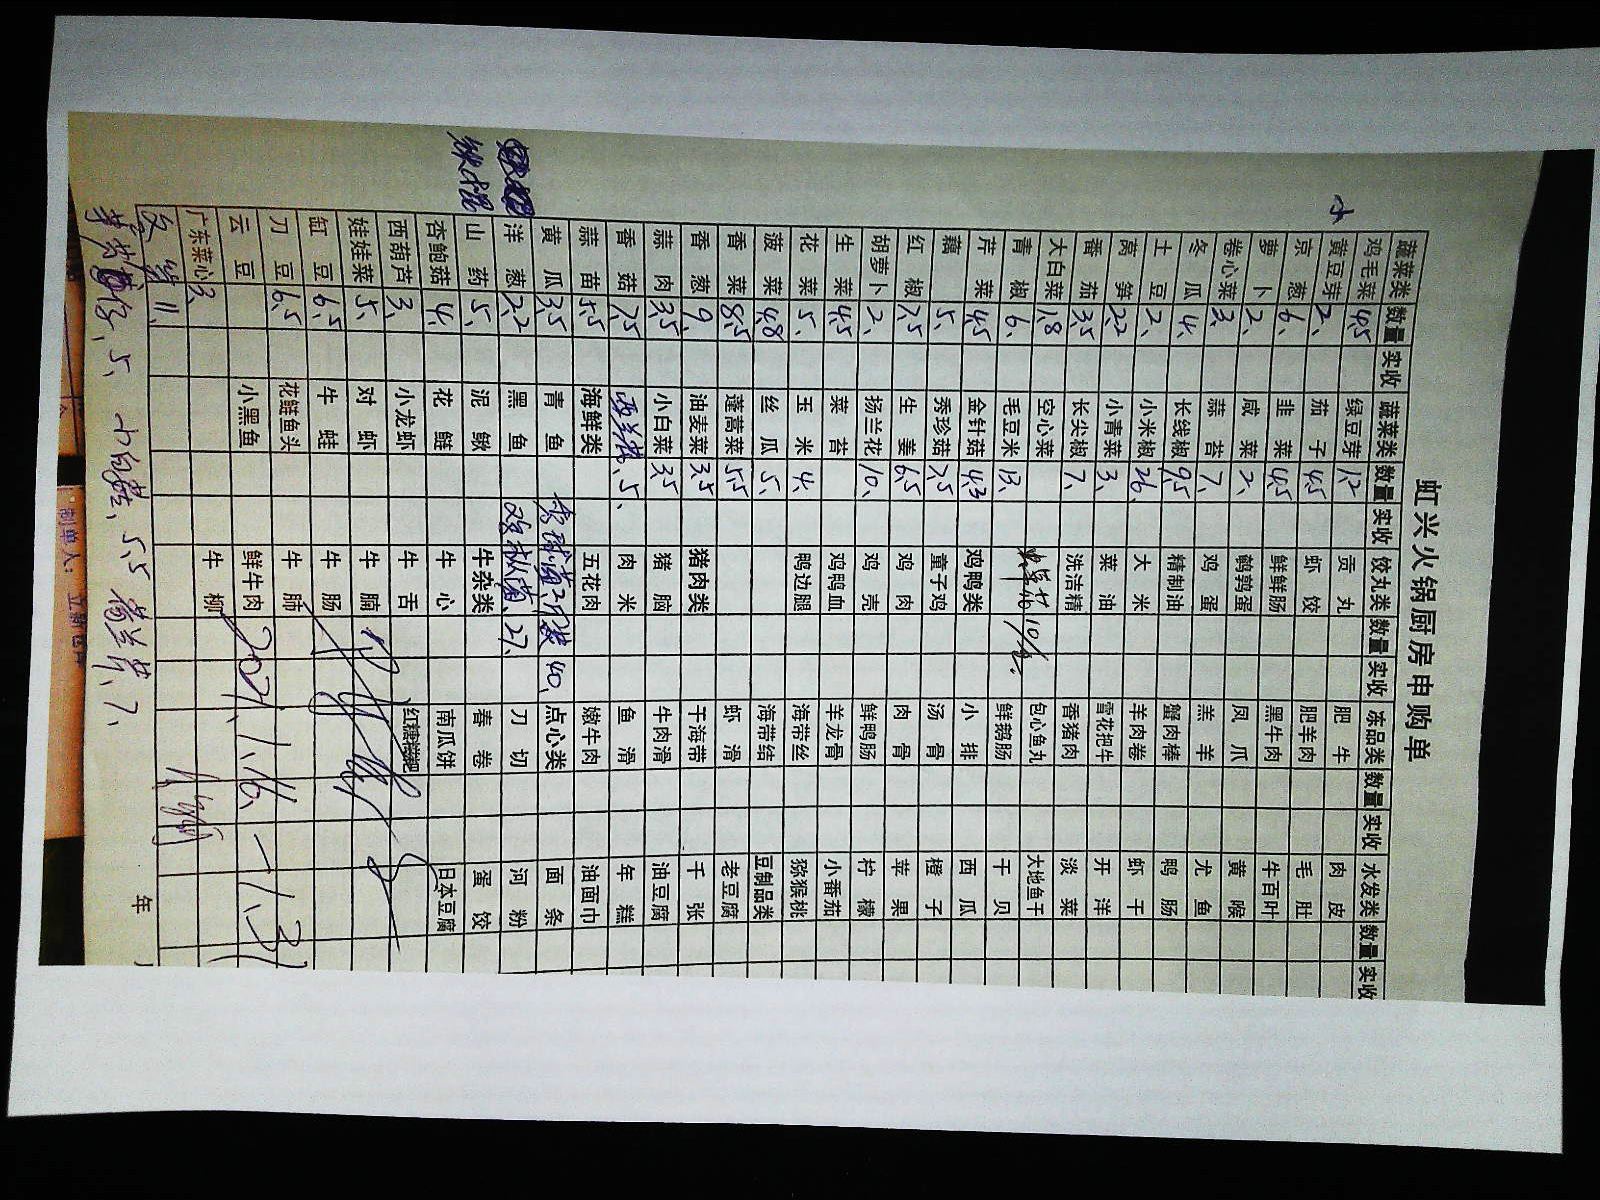 虹兴火锅厨房申购单
蔬菜类 数量 实收 蔬菜类 数量 实收 饺丸类 数量 实收 冻品类 数量 实收 水发类 数量 实收
鸡毛菜 4.5 绿豆芽 1.2 贡丸 肥牛 肉皮
黄豆芽 2、 茄子 4.5 虾饺 肥羊肉 毛肚
京葱 6、 韭菜 4.5 鲜鲜肠 黑牛肉 牛百叶
萝卜 2、 咸菜 2、 鹌鹑蛋 凤爪 黄喉
卷心菜 3、 蒜苔 7、 鸡蛋 羔羊 尤鱼
冬瓜 4、 长线椒 9.5 精制油 蟹肉棒 鸭肠
土豆 2、 小米椒 26、 大米 羊肉卷 虾干
莴笋 2.2 小青菜 3、 菜油 雪花把牛 开洋
番茄 3.5 长尖椒 7、 洗洁精 香猪肉 淡菜
大白菜 1.8 空心菜 包心鱼丸 大地鱼干
青椒 6、 毛豆米 13、 鲜鹅肠 干贝
芹菜 4.5 金针菇 4.3 鸡鸭类 小排 西瓜
藕 5、 秀珍菇 7.5 童子鸡 汤骨 橙子
红椒 7.5 生姜 6.5 鸡肉 肉骨 苹果
胡萝卜 2、 扬兰花 10、 鸡壳 鲜鸭肠 柠檬
生菜 4.5 菜苔 鸡鸭血 羊龙骨 小番茄
花菜 5、 玉米 4、 鸭边腿 海带丝 猕猴桃
菠菜 4.8 丝瓜 5、 海带结 豆制品类
香菜 8.5 蓬蒿菜 5.5 虾滑 老豆腐
香葱 9、 油麦菜 3.5 猪肉类 干海带 千张
蒜肉 3.5 小白菜 3.5 猪脑 牛肉滑 油豆腐
香菇 7.5 西兰花 5、 肉米 鱼滑 年糕
蒜苗 5.5 海鲜类 五花肉 嫩牛肉 油面巾
黄瓜 3.5 青鱼 40、 点心类 面条
洋葱 2.2 黑鱼 鸡枞菌、27、 刀切 河粉
山药 5、 泥鳅 牛杂类 春卷 蛋饺
杏鲍菇 4、 花鲢 牛心 南瓜饼 日本豆腐
西葫芦 3、 小龙虾 牛舌 红糖糍粑
娃娃菜 5、 对虾 牛腩
缸豆 6.5 牛蛙 牛肠
刀豆 6.5 花鲢鱼头 牛肺
云豆 小黑鱼 鲜牛肉 2021.1.16、—1.31
广东菜心 3、 牛柳
冬笋 11、
年
5、 5.5 7、
制单人: